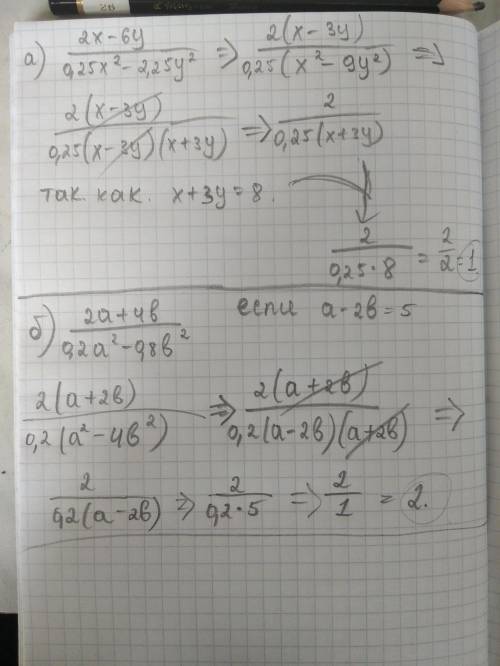 а) (2x-6y)/(0,25x²-2,25y²) => 2(x-3y)/(0,25(x²-9y²)) =>
2(x-3y)/(0,25(x-3y)(x+3y)) => 2/(0,25(x+3y))
так как. x+3y=8.
2/(0,25·8) = 2/2 = 1
б) (2a+4b)/(0,2a²-0,8b²) если a-2b=5
2(a+2b)/(0,2(a²-4b²)) => 2(a+2b)/(0,2(a-2b)(a+2b)) =>
2/(0,2(a-2b)) => 2/(0,2·5) => 2/1 = 2.